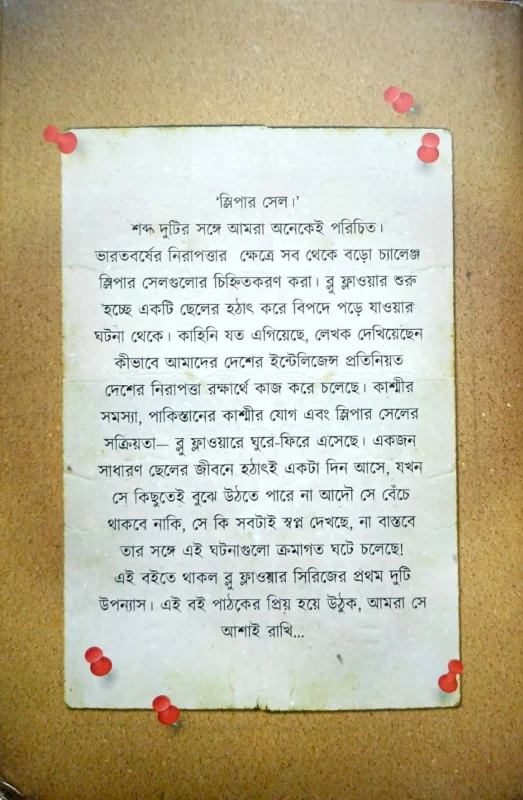 ‘স্লিপার সেল।’
শব্দ দুটির সঙ্গে আমরা অনেকেই পরিচিত।
ভারতবর্ষের নিরাপত্তার ক্ষেত্রে সব থেকে বড়ো চ্যালেঞ্জ
স্লিপার সেলগুলোর চিহ্নিতকরণ করা। ব্লু ফ্লাওয়ার শুরু
হচ্ছে একটি ছেলের হঠাৎ করে বিপদে পড়ে যাওয়ার
ঘটনা থেকে। কাহিনি যত এগিয়েছে, লেখক দেখিয়েছেন
কীভাবে আমাদের দেশের ইন্টেলিজেন্স প্রতিনিয়ত
দেশের নিরাপত্তা রক্ষার্থে কাজ করে চলেছে। কাশ্মীর
সমস্যা, পাকিস্তানের কাশ্মীর যোগ এবং স্লিপার সেলের
সক্রিয়তা— ব্লু ফ্লাওয়ারে ঘুরে-ফিরে এসেছে। একজন
সাধারণ ছেলের জীবনে হঠাৎই একটা দিন আসে, যখন
সে কিছুতেই বুঝে উঠতে পারে না আদৌ সে বেঁচে
থাকবে নাকি, সে কি সবটাই স্বপ্ন দেখছে, না বাস্তবে
তার সঙ্গে এই ঘটনাগুলো ক্রমাগত ঘটে চলেছে!
এই বইতে থাকল ব্লু ফ্লাওয়ার সিরিজের প্রথম দুটি
উপন্যাস। এই বই পাঠকের প্রিয় হয়ে উঠুক, আমরা সে
আশাই রাখি...